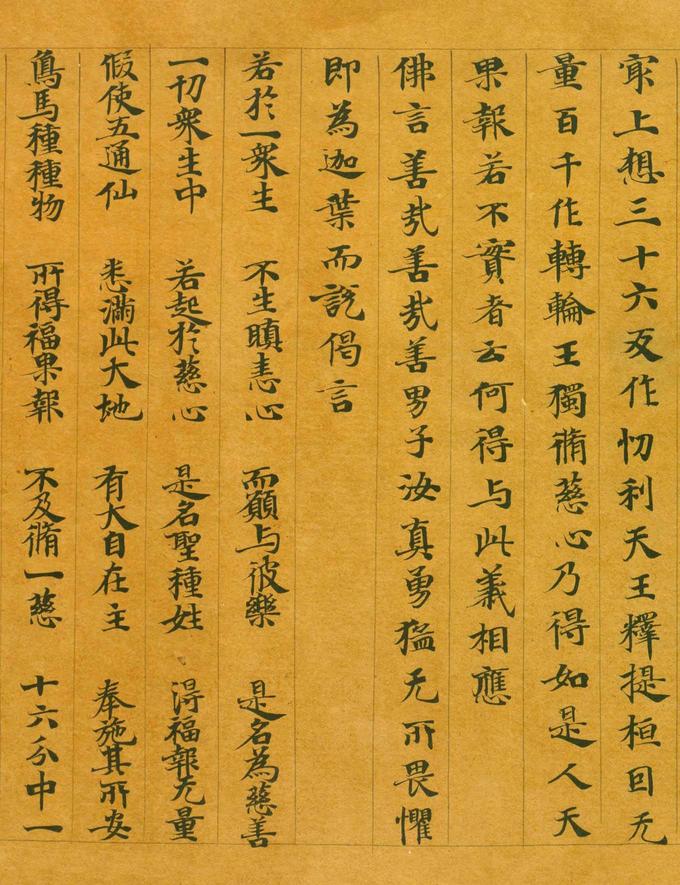 㝡上想三十六反作忉利天王釋提桓因无
量百千作轉輪王獨脩慈心乃得如是人天
果報若不實者云何得与此義相應
佛言善哉善哉善男子汝真勇猛无所畏懼
即為迦葉而說偈言
若於一衆生 不生瞋恚心 而願与彼樂 是名為慈善
一切衆生中 若起於慈心 是名聖種姓 得福報无量
假使五通仙 悉滿此大地 有大自在主 奉施其所安
鳥馬種種物 所得福果報 不及脩一慈 十六分中一